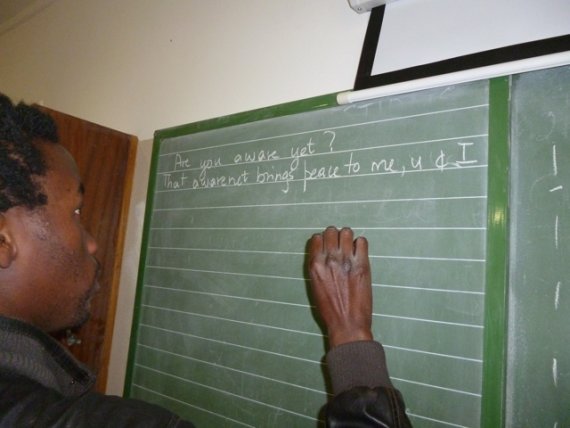 Are you aware yet?
That awarenet brings peace to me, u & I